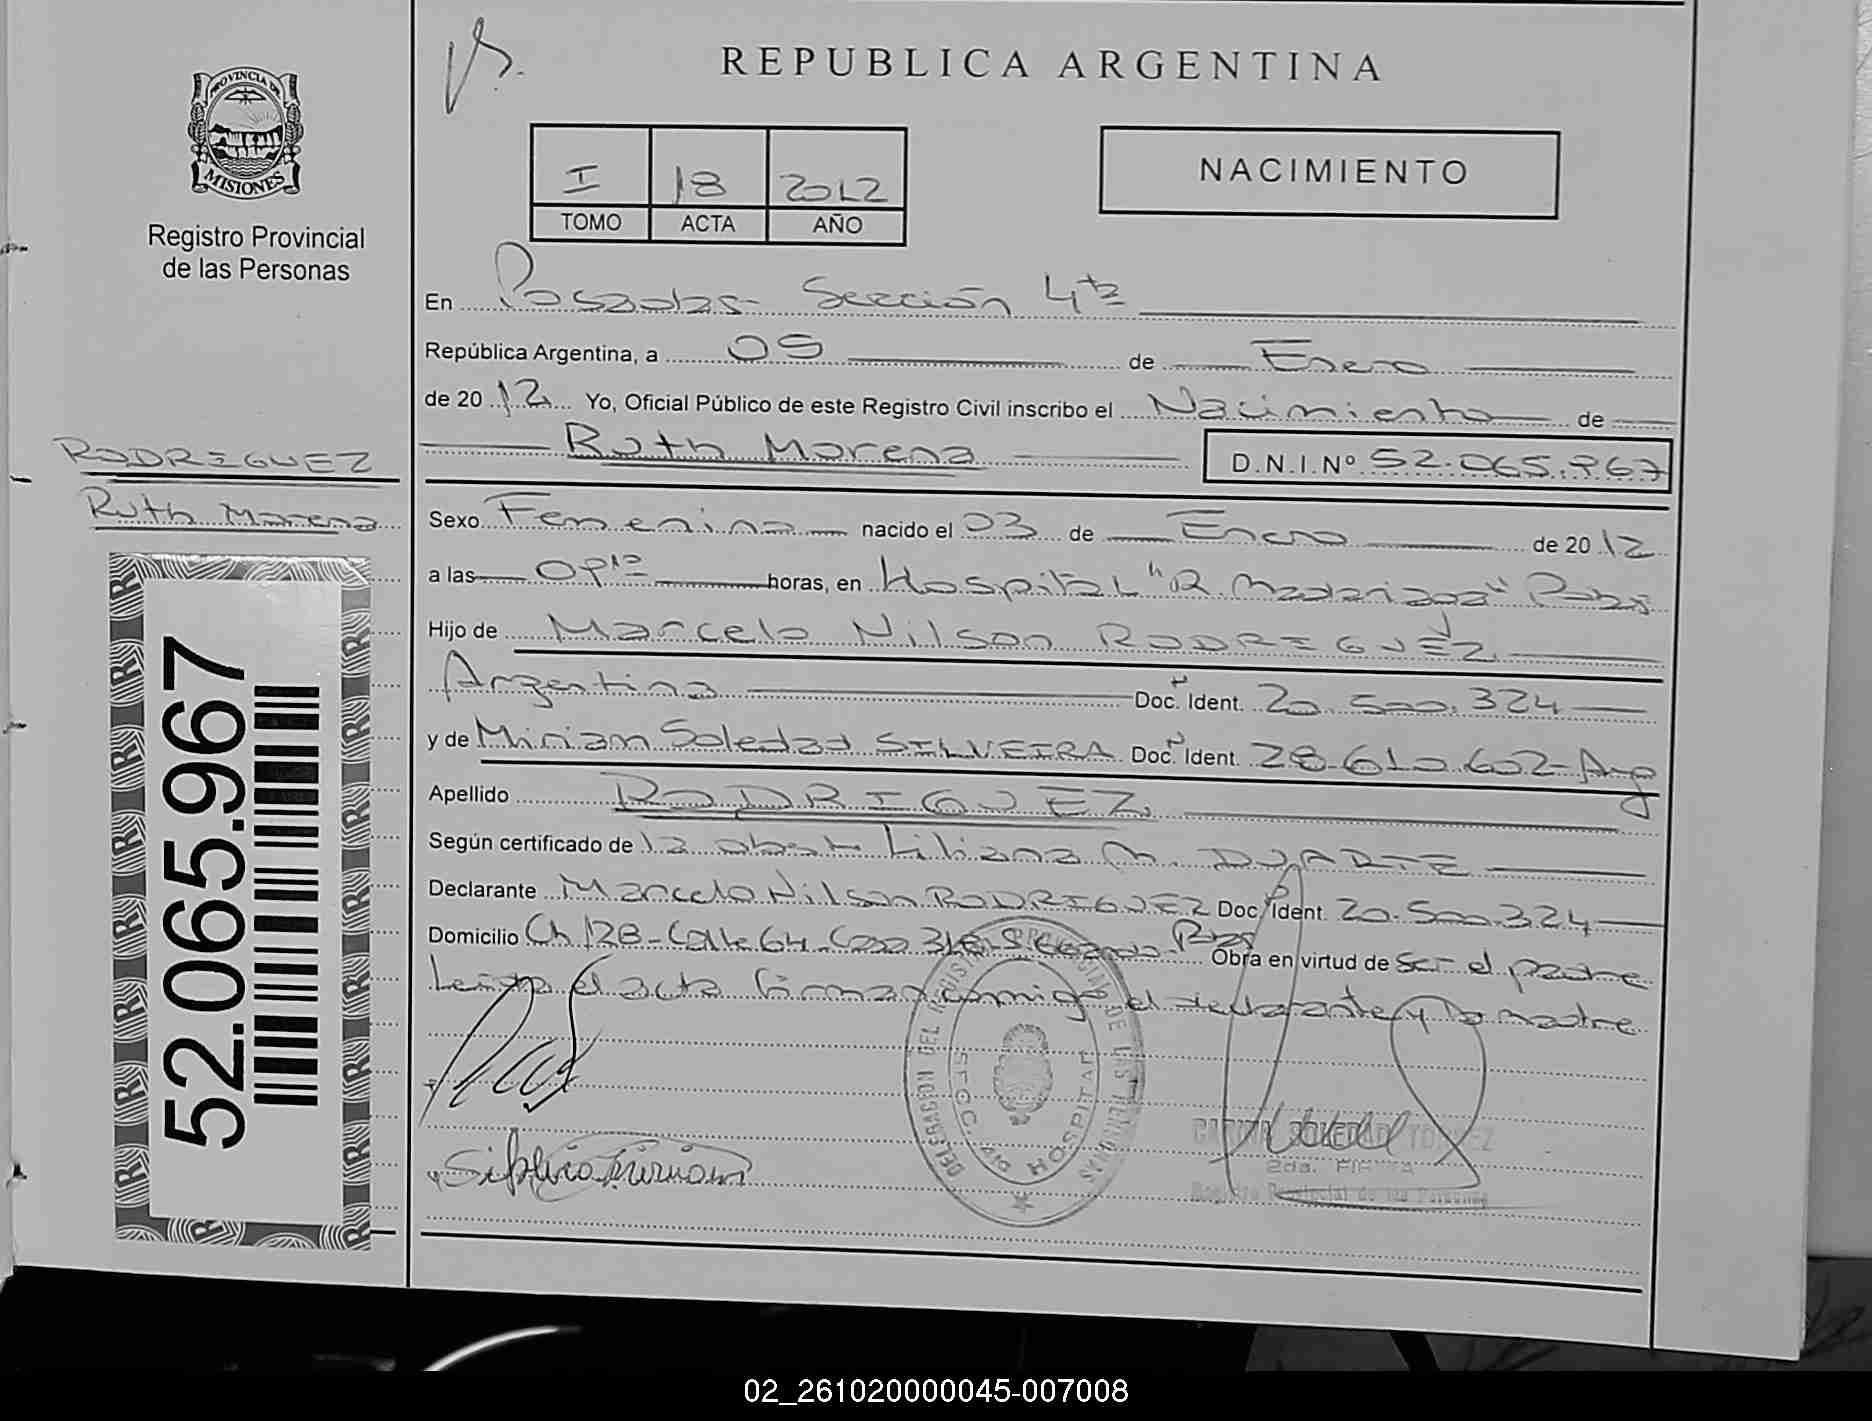 REPUBLICA ARGENTINA
PROVINCIA DE
MISIONES
Registro Provincial
de las Personas
I 18 2012
TOMO ACTA AÑO
NACIMIENTO
En Posadas- Sección 4ta
República Argentina, a 05 de Enero
de 2012 Yo, Oficial Público de este Registro Civil inscribo el Nacimiento de
Ruth Morena D.N.I.Nº 52.065.967
RODRIGUEZ
Ruth Morena
Sexo Femenina nacido el 03 de Enero de 2012
a las horas, en Hospital "R. Madariaga" Pdas
Hijo de Marcelo Nilson RODRIGUEZ
Argentina Doc. Ident. 20.500.324
y de Miriam Soledad SILVEIRA Doc. Ident. 28.610.602-Arg
Apellido RODRIGUEZ
Según certificado de la obst. Liliana M. DUARTE
Declarante Marcelo Nilson RODRIGUEZ Doc. Ident. 20.500.324
Domicilio Ch 128-Calle 64-Casa Pdas Obra en virtud de ser el padre
Leída el acta firman conmigo el declarante y la madre
52.065.967
DELEGACION DEL REGISTRO PROVINCIAL DE LAS PERSONAS
SECC. 4ta HOSPITAL
Silveira Miriam
SOLEDAD
2da. FIRMA
Registro Provincial de las Personas
02_261020000045-007008